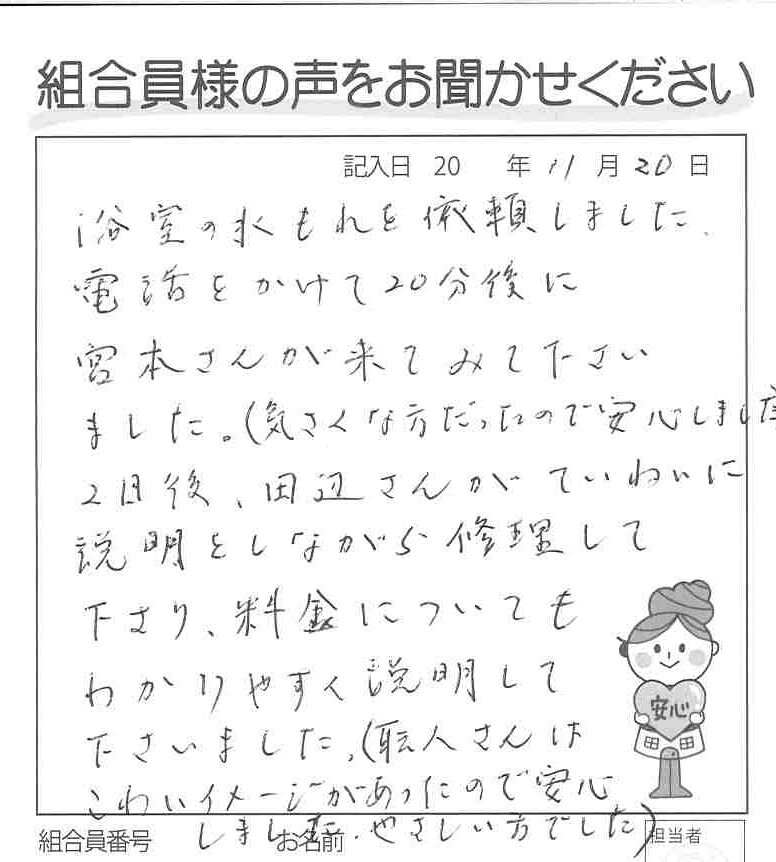 組合員様の声をお聞かせください
記入日 20 年 11 月 20 日
浴室の水もれを依頼しました。
電話をかけて20分後に
宮本さんが来てみて下さい
ました。(気さくな方だったので安心しました
2日後、田辺さんがていねいに
説明をしながら修理して
下さり、料金についても
わかりやすく説明して
下さいました。(職人さんは
こわいイメージがあったので安心
しました。やさしい方でした)
安心
組合員番号 お名前 担当者